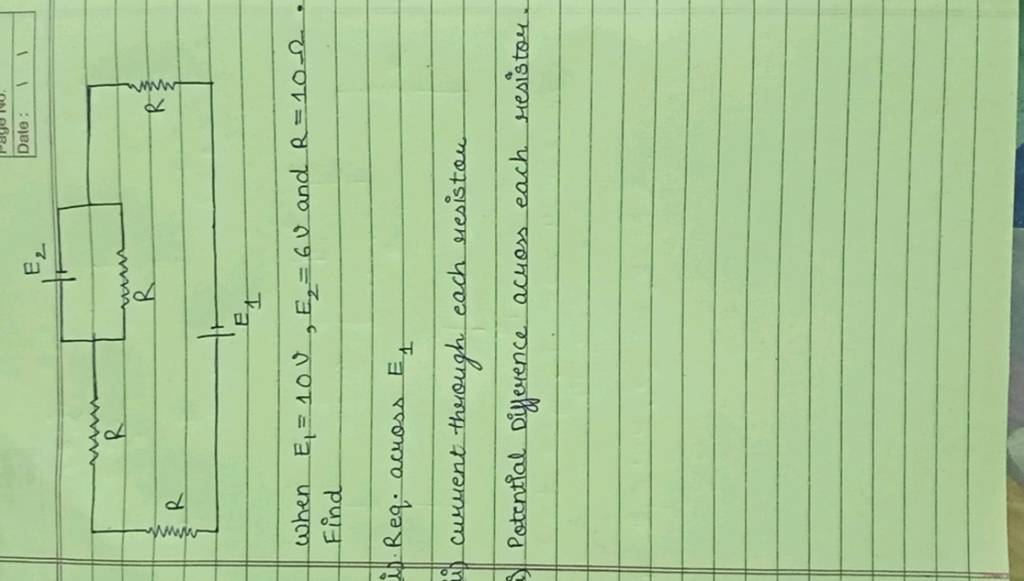 Page No.
Date :
E2
R
R
R
R
E1
When E1 = 10V , E2 = 6V and R = 10Ω .
Find
i). Req. across E1
ii) current through each resistor
Potential Difference across each resistor.